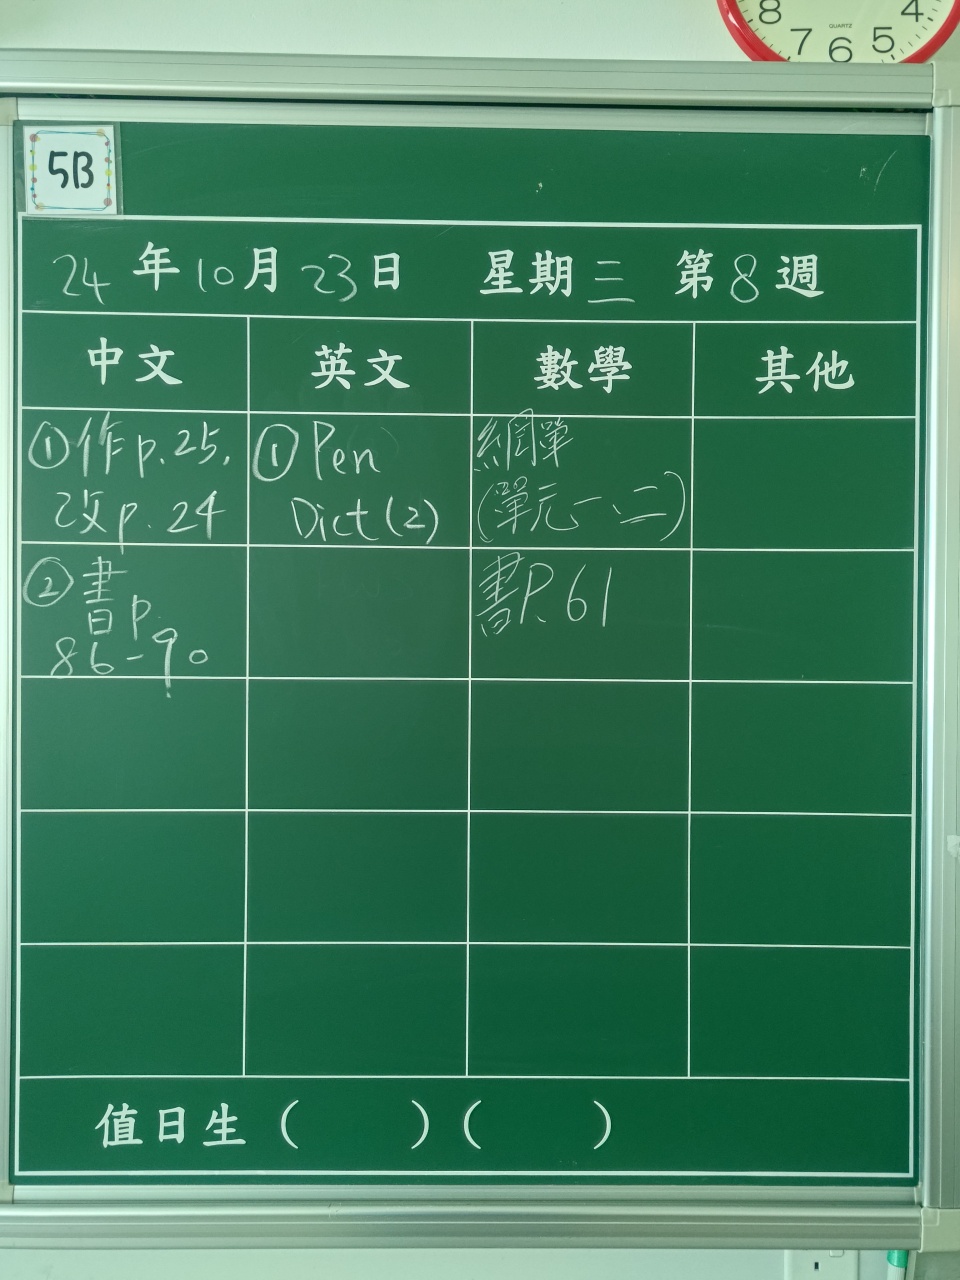 8 7 6 5 4
QUARTZ
5B
24年10月23日 星期三 第8週
中文 英文 數學 其他
①作p.25, ①Pen 網單
改p.24 Dict(2) (單元一、二)
②書p. 書P.61
86-90
值日生( )( )